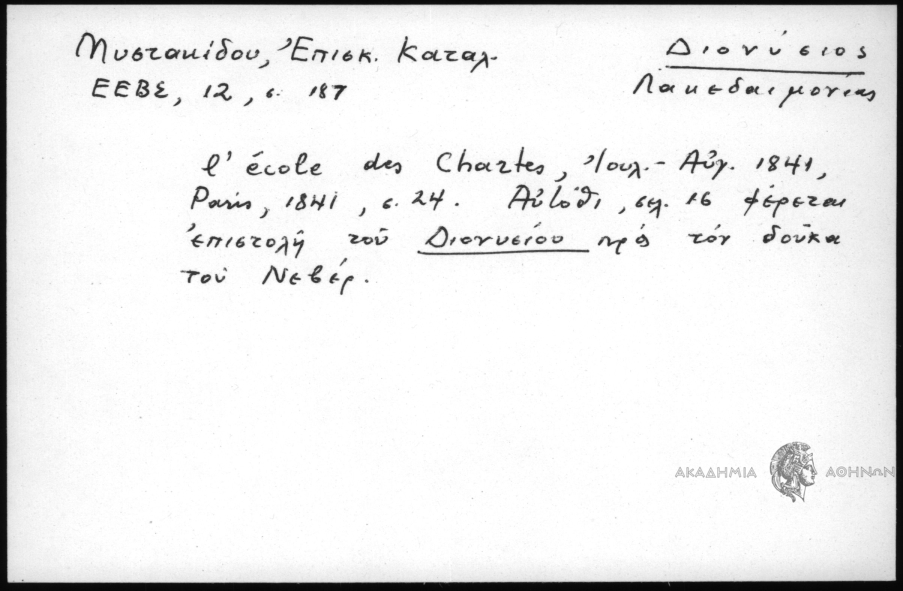 Μυστακίδου, Ἐπισκ. Καταλ. Διονύσιος
ΕΕΒΣ, 12, σ. 187 Λακεδαιμονίας
l' école des Chartes, Ἰουλ.- Αὔγ. 1841,
Paris, 1841, σ. 24. Αὐτόθι, σελ. 16 φέρεται
ἐπιστολὴ τοῦ Διονυσίου πρός τόν δοῦκα
τοῦ Νεβέρ.
ΑΚΑΔΗΜΙΑ ΑΘΗΝΩΝ